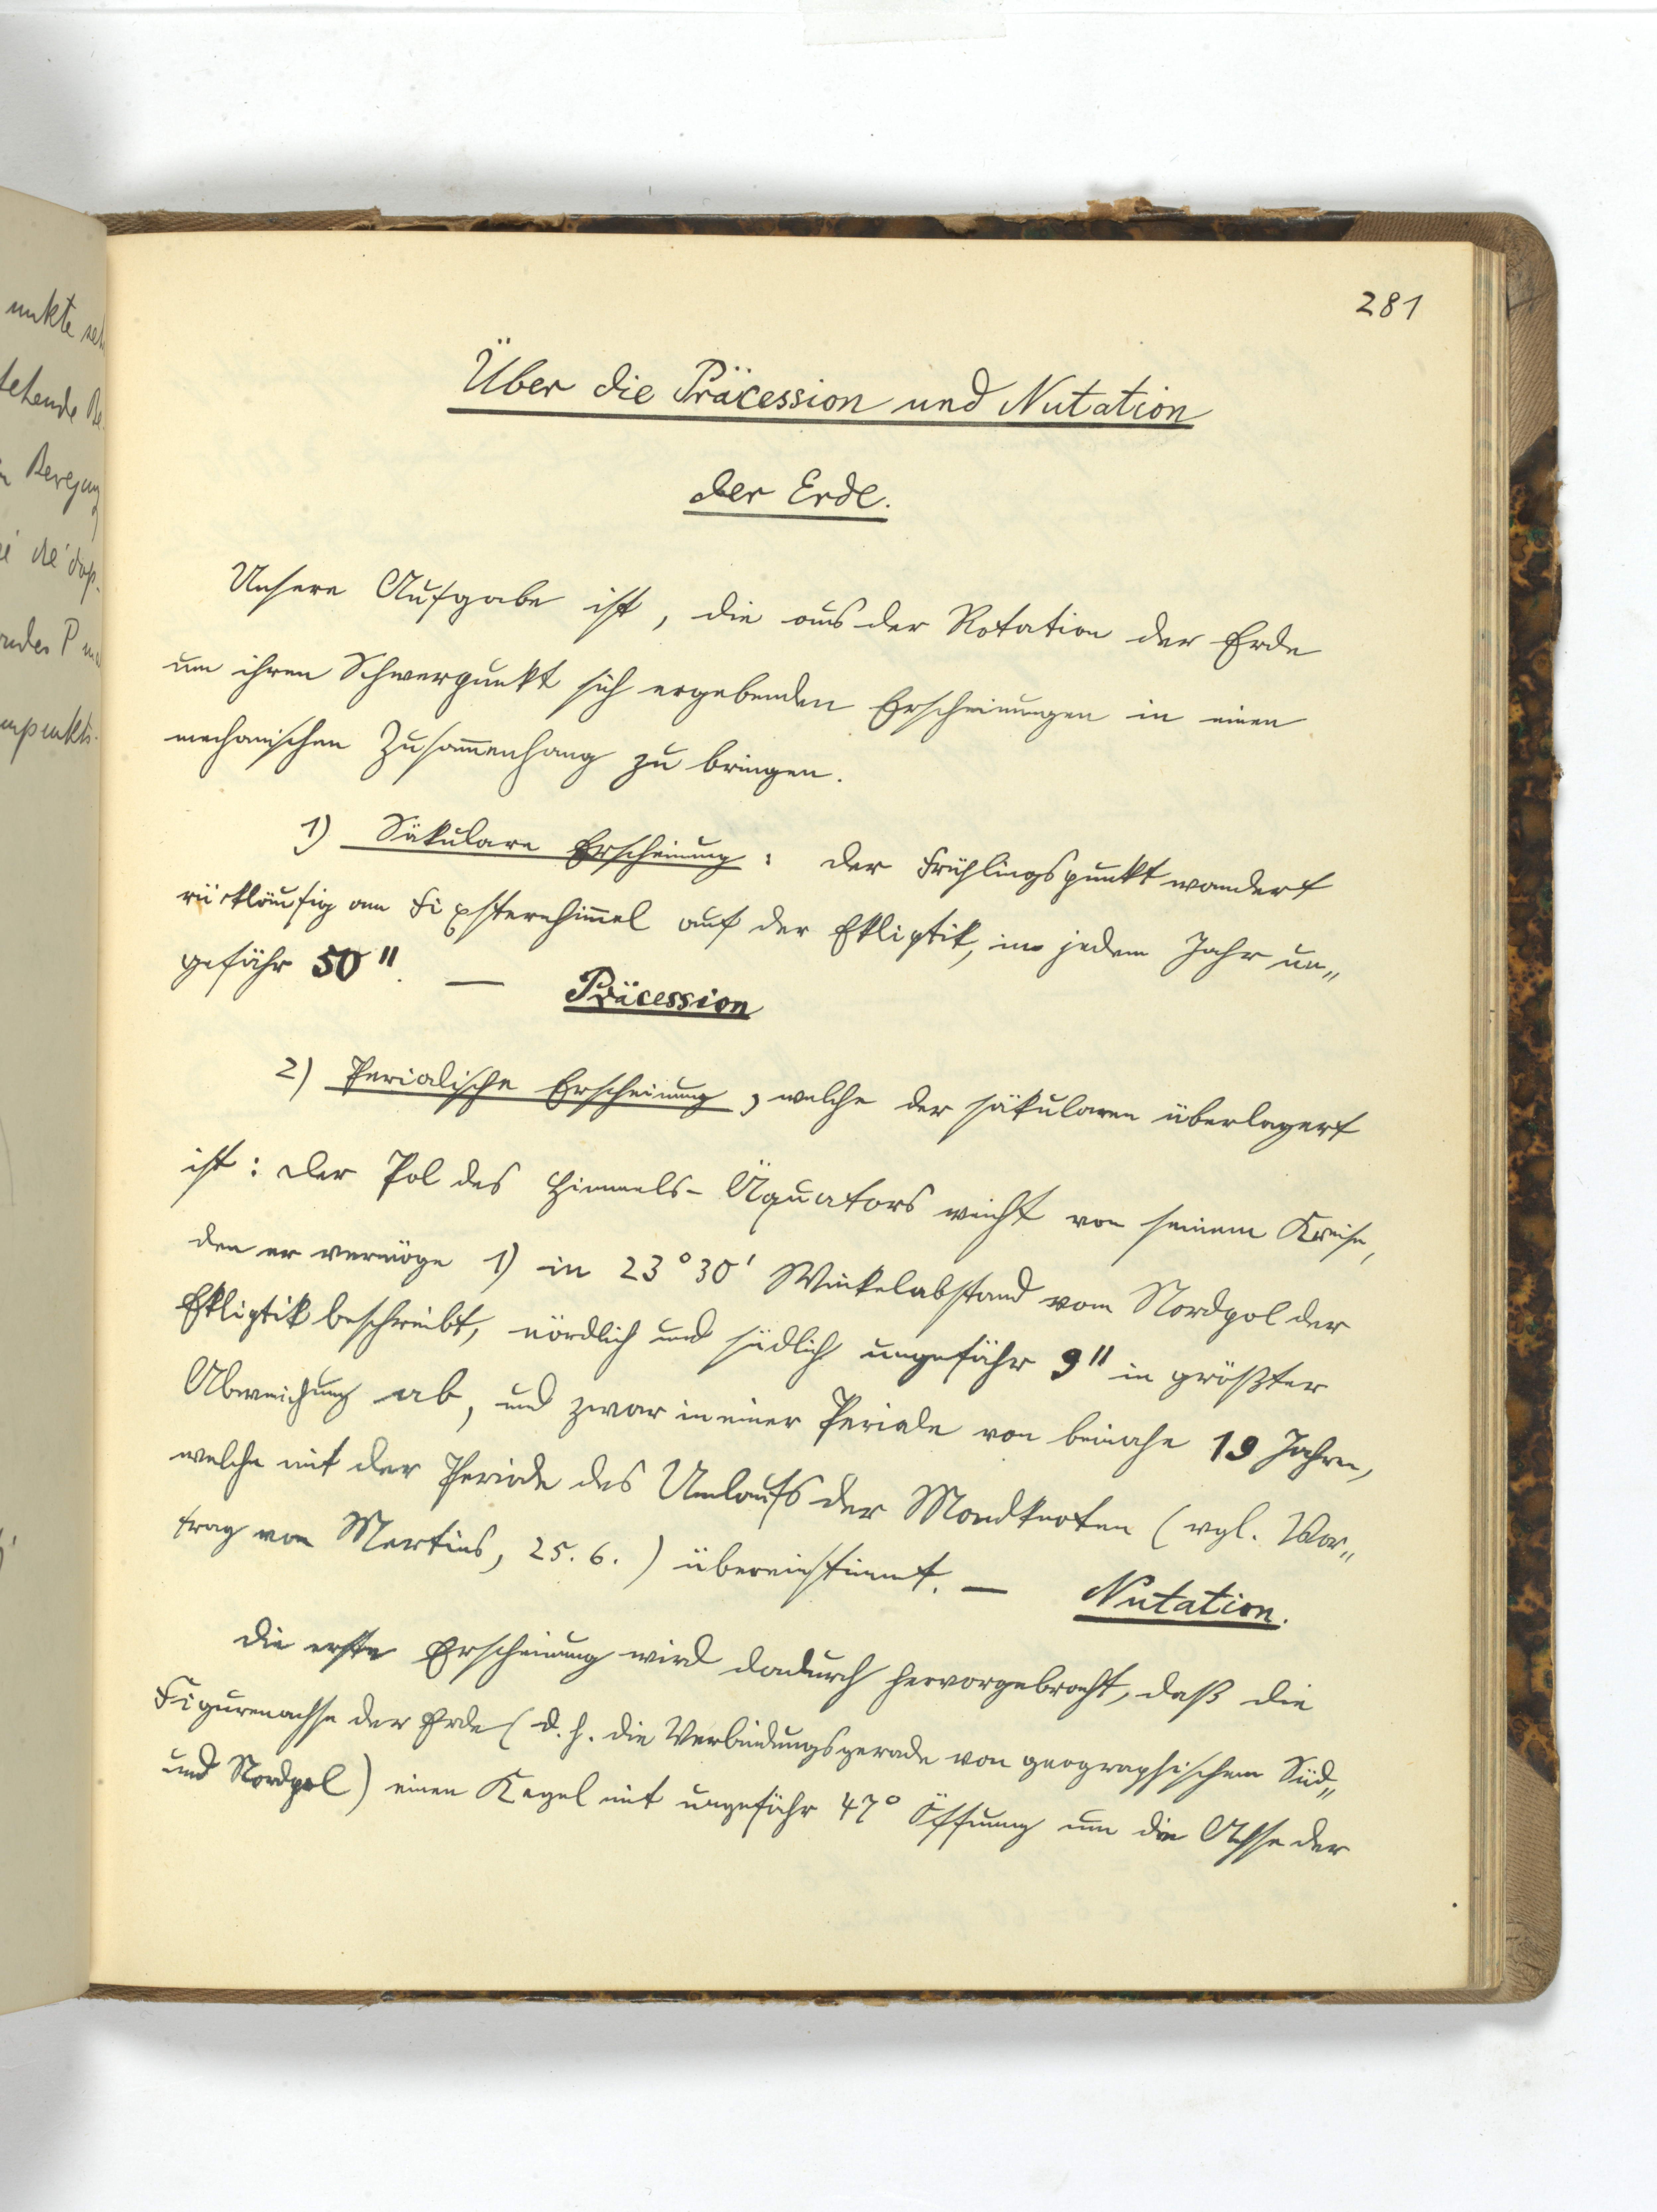 281
Über die Präcession und Nutation
der Erde.
Unsere Aufgabe ist, die aus der Rotation der Erde
um ihren Schwerpunkt sich ergebenden Erscheinungen in einen
mechanischen Zusam̅enhang zu bringen.
1) Säkulare Erscheinung: der Frühlingspunkt wandert
rückläufig am Fixsternhim̅el auf der Ekliptik, in jedem Jahr un„
gefähr 50". — Präcession
2) Periodische Erscheinung, welche der säkularen überlagert
ist: der Pol des Himmels-Äquators weicht von seinem Kreise,
den er vermöge 1) in 23°30' Winkelabstand vom Nordpol der
Ekliptik beschreibt, nördlich und südlich ungefähr 9" in größter
Abweichung ab, und zwar in einer Periode von beinahe 19 Jahren,
welche mit der Periode des Umlaufs der Mondknoten (vgl. Vor„
trag von Mertins, 25.6.) übereinstimmt. — Nutation.
die erste Erscheinung wird dadurch hervorgebracht, daß die
Figurenachse der Erde (d.h. die Verbindungsgerade von geographischem Süd„
und Nordpol) einen Kegel mit ungefähr 47° Öffnung um die Achse der
unkte
tehende Be-
Bewegung
die dop-
endes P